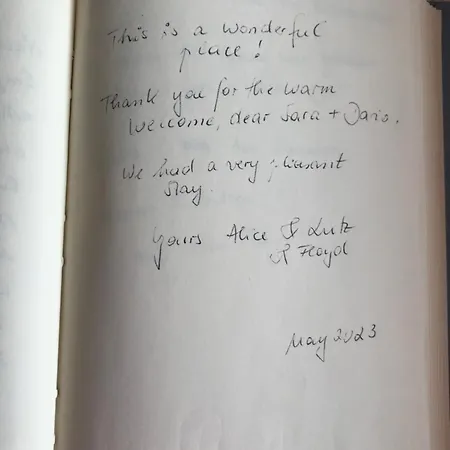 This is a wonderful
place!
Thank you for the warm
welcome, dear Sara + Dario.
We had a very pleasant
stay.
Yours Alice & Lutz
& Floyd
May 2023